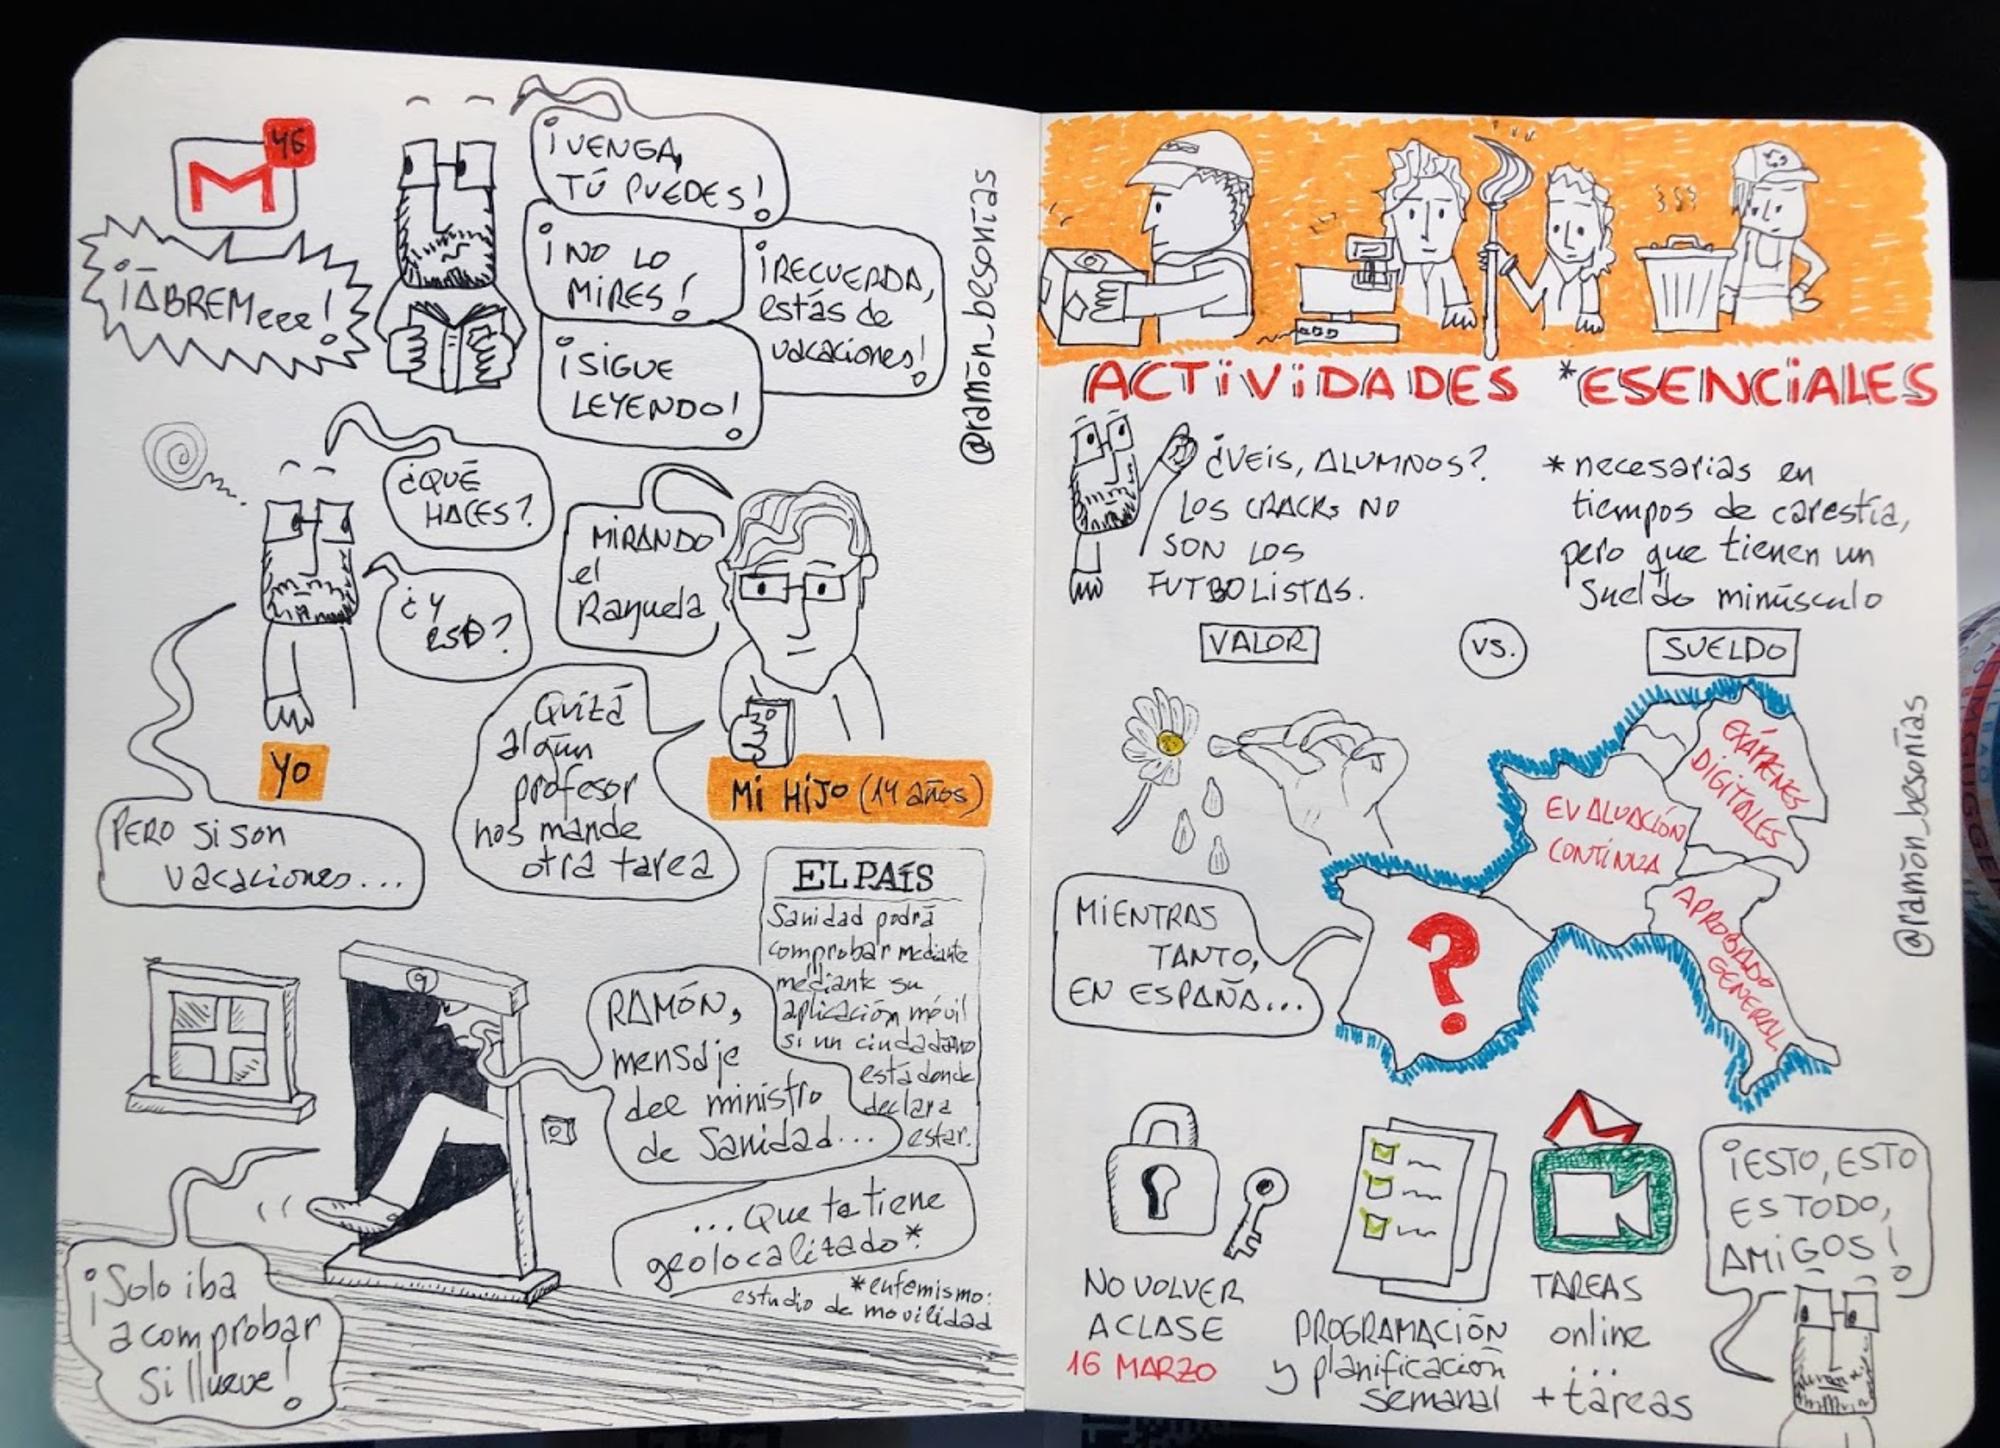 46
¡ABREMeee!
¡VENGA,
TÚ PUEDES!
¡NO LO
MIRES!
¡RECUERDA,
estás de
vacaciones!
¡SIGUE
LEYENDO!
@ramón_besonías
¿QUÉ
HACES?
MIRANDO
el
Rayuela
¿Y
ESO?
Quizá
algún
profesor
nos mande
otra tarea
YO
MI HIJO (14 años)
PERO SI SON
vacaciones...
EL PAÍS
Sanidad podrá
comprobar mediante
mediante su
aplicación móvil
si un ciudadano
está donde
declara
estar.
9
RAMÓN,
mensaje
del ministro
de Sanidad...
...Que te tiene
geolocalizado*.
*eufemismo:
estudio de movilidad
¡Solo iba
a comprobar
si llueve!
ACTIVIDADES *ESENCIALES
¿VEIS, ALUMNOS?
LOS CRACKS NO
SON LOS
FUTBOLISTAS.
*necesarias en
tiempos de carestía,
pero que tienen un
sueldo minúsculo
VALOR
VS.
SUELDO
EXÁMENES
DIGITALES
EVALUACIÓN
CONTINUA
APROBADO
GENERAL
@ramón_besonías
MIENTRAS
TANTO,
EN ESPAÑA...
?
NO VOLVER
A CLASE
16 MARZO
PROGRAMACIÓN
y planificación
semanal
TAREAS
online
...
+ tareas
¡ESTO, ESTO
ES TODO,
AMIGOS!